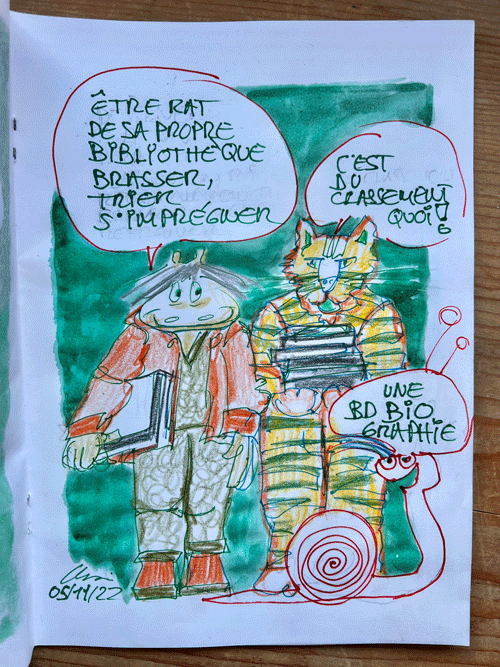 ÊTRE RAT
DE SA PROPRE
BIBLIOTHÈQUE
BRASSER,
TRIER
S'IMPRÉGNER
C'EST
DU
CLASSEMENT
QUOI!
UNE
BD BIO
GRAPHIE
05/11/22